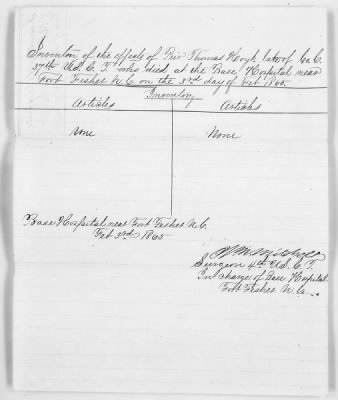 Inventory of the effects of Priv Thomas Hoyt late of Co C.
37th U.S.C.T. who died at the Base Hospital near
Fort Fisher N.C. on the 3rd day of Feb 1865.
Inventory
Articles Articles
None None
Base Hospital near Fort Fisher N.C.
Feb 3rd 1865
Surgeon 4th U.S.C.T.
In charge of Base Hospital
Fort Fisher N.C.